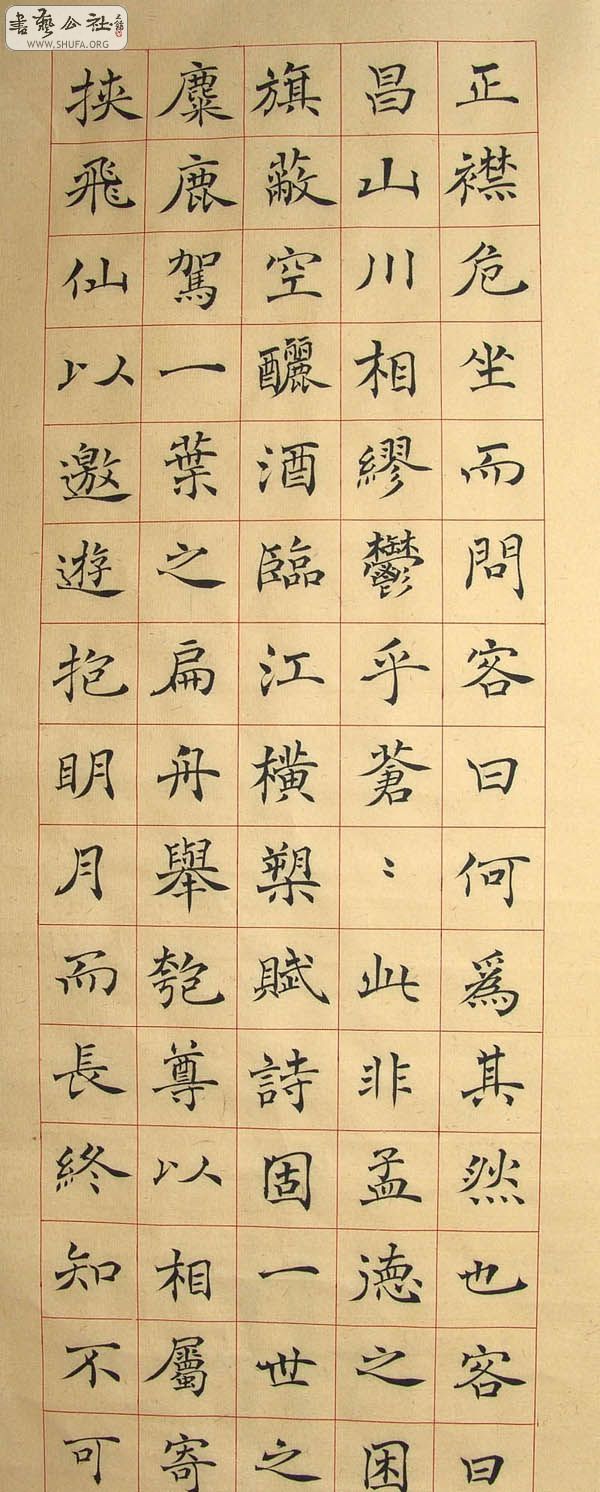 書藝公社
WWW.SHUFA.ORG
正襟危坐而問客曰何爲其然也客曰
昌山川相繆鬱乎蒼〻此非孟德之困
旗蔽空釃酒臨江橫槊賦詩固一世之
麋鹿駕一葉之扁舟舉匏尊以相屬寄
挾飛仙以遨遊抱明月而長終知不可